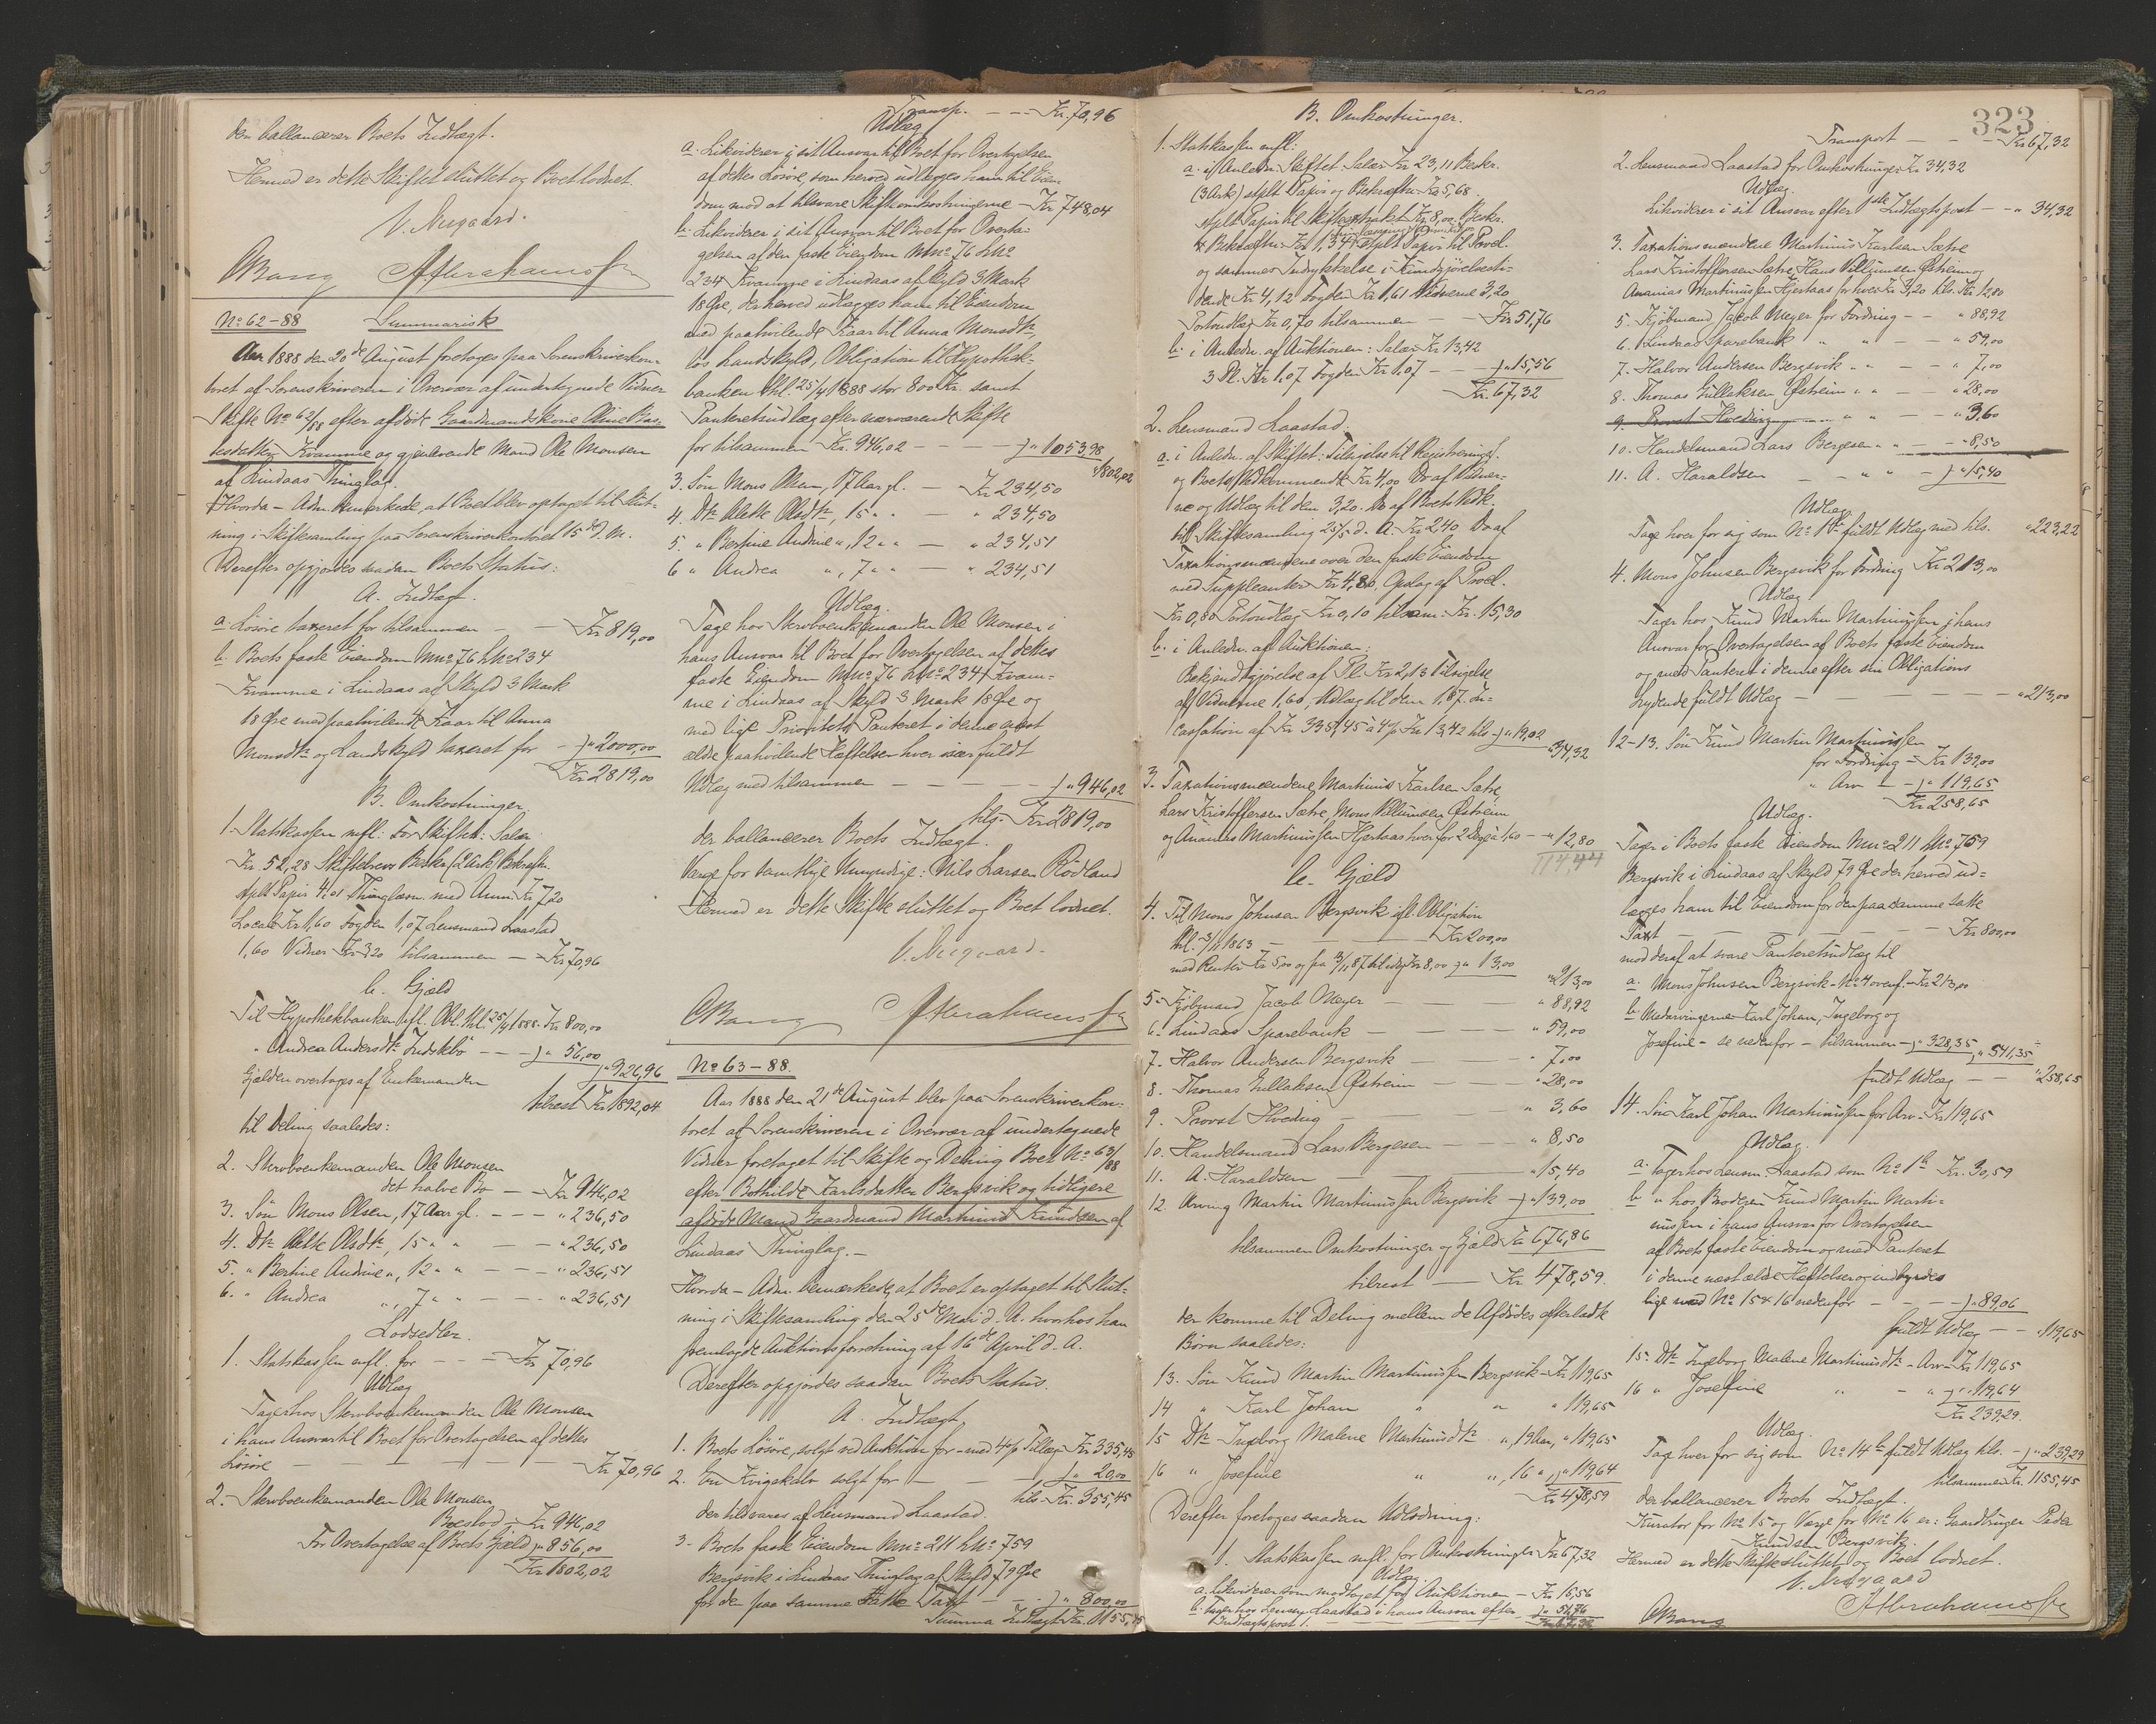 den ballancerer Boets Indtægt.
Hermed er dette Skiftet sluttet og Boet lodnet.
V. Neegaard.
OBang Abrahamsen
No 62-88 Summarisk
Aar 1888 den 20de August foretoges paa Sorenskriverkon-
toret af Sorenskriveren i Overvær af undertegnede Vidner
Skifte No 62/88 efter afdöde Gaardmandskone Oline Bas-
tesdatter Kvamme og gjenlevende Mand Ole Monsen
af Lindaas Thinglag.
Hvorda - Adm. bemærkede, at Boet blev optaget til Slut-
ning i Skiftesamling paa Sorenskriverkontoret 15de d. M.
Derefter opgjordes saadan Boets Status:
A. Indtægt.
a. Lösöre taxeret for tilsammen - - Kr 819,00
b. Boets faste Eiendom Mno 76 Lno 234
Kvamme i Lindaas af Skyld 3 Mark
18 Öre med paahvilende Kaar til Anna
Monsdtr og Landskyld taxeret for - " 2000,00
Kr 2819,00
B. Omkostninger
1. Statskassen mfl.: For Skiftet: Salær
Kr. 52,28 Skiftebrevs Beskr. (2 Ark) Bekræftn.
stplt Papir 4,01 Thinglæsn. med Anm. Kr 7,20
Locale Kr 1,60 Fogden 1,07 Lensmand Laastad
1,60 Vidner Kr 3,20 tilsammen - Kr 70,96
b. Gjæld
Til Hypothekbanken ifl. Obl. thl. 25/4 1888. Kr 800,00
" Andrea Andersdtr Indskebö - - " 56,00
" 926,96
Gjælden overtages af Enkemanden
tilrest Kr 1892,04
til Deling saaledes:
2. Skrvboenkemanden Ole Monsen
det halve Bo - Kr 946,02
3. Sön Mons Olsen, 17 Aar gl. - - - " 236,50
4. Dtr Alette Olsdtr, 15 " " - - " 236,50
5. " Bertine Andrine ", 12 " " - - " 236,51
6. " Andrea " , 7 " " - - - " 236,51
Lodsedler.
1. Statskassen mfl. for - - - Kr 70,96
Udlæg
Tager hos Skrvboenkemanden Ole Monsen
i hans Ansvar til Boet for Overtagelsen af dettes
Lösöre - - - - - Kr 70,96
2. Skrvboenkemanden Ole Monsen
Boeslod - Kr 946,02
For Overtagelse af Boets Gjæld " 856,00
Kr 1802,02
Transp. - - - Kr. 70,96
Udlæg
a. Likviderer i sit Ansvar til Boet for Overtagelsen
af dettes Lösöre, som herved udlægges ham til Eien-
dom mod at tilsvare Skifteomkostningerne - Kr 748,04
b. Likviderer i sit Ansvar til Boet for Overta-
gelsen af den faste Eiendom Mno 76 Lno
234 Kvamme i Lindaas af Skyld 3 Mark
18 Öre, der herved udlægges ham til Eiendom
med paahvilende Kaar til Anna Monsdtr,
lös Landskyld, Obligation til Hypothek-
banken thl. 25/4 1888 stor 800 Kr. samt
Panteretsudlæg efter nærværende Skifte
for tilsammen Kr. 946,02 - - - " 1053,98
" 1802,02
3. Sön Mons Olsen, 17 Aar gl. - Kr 234,50
4. Dtr Alette Olsdtr, 15 " " - " 234,50
5. " Bertine Andrine ", 12 " " - " 234,51
6 " Andrea " , 7 " " - " 234,51
Udlæg.
Tage hos Skrvboenkemanden Ole Monsen i
hans Ansvar til Boet for Overtagelsen af dettes
faste Eiendom Mno 76 Lno 234 Kvam-
me i Lindaas af Skyld 3 Mark 18 Öre og
med lige Prioritets Panteret i denne næst
ældre paahvilende Hæftelser hver især fuldt
Udlæg med tilsammen - - - - - " 946,02
tilg. Kr 2819,00
der ballancerer Boets Indtægt.
Værge for samtlige Umyndige: Nils Larsen Rödland
Hermed er dette Skifte sluttet og Boet lodnet.
V. Neegaard.
OBang Abrahamsen
No 63-88.
Aar 1888 den 21de August blev paa Sorenskriverkon-
toret af Sorenskriveren i Overvær af undertegnede
Vidner foretaget til Skifte og Deling Boet No 63/88
efter Bothilde Karlsdatter Bergsvik og tidligere
afdöde Mand Gaardmand Martinus Knudsen af
Lindaas Thinglag. -
Hvorda - Adm. bemærkede, at Boet er optaget til Slut-
ning i Skiftesamling den 25de Mai d. A. hvorhos han
fremlagde Auktionsforretning af 16de April d. A.
Derefter opgjordes saadan Boets Status.
A. Indtægt.
1. Boets Lösöre, solgt ved Auktion for - med 4% Tillæg Kr. 335,45
2. En Kvigekalv solgt for - - - " 20,00
tils. Kr. 355,45
der tilsvares af Lensmand Laastad.
3. Boets faste Eiendom Mno 211 Lno 759
Bergsvik i Lindaas Thinglag af Skyld 79 Öre
for den paa samme satte Taxt - - - " 800,00
Summa Indtægt Kr. 1155,45
B. Omkostninger.
1. Statskassen mfl:
a. i Anledn. Skiftet: Salær Kr 23,11 Beskr.
(3 Ark) stplt Papir og Bekræftn. Kr 5,68.
stplt Papir til Skifteextrakt Kr 8,00 Beskr.
& Bekræftn. Kr 1,34 stplt Papir til Procl.
og sammes Indrykkelse i Kundgjörelsesti-
dende Kr 4,12 Fogden Kr 1,61 Vidnerne 3,20
Portoudlæg Kr 0,70 tilsammen - - Kr 51,76
b. i Anledn. af Auktionen: Salær Kr 13,42
3 Pl. Kr 1,07 Fogden Kr 1,07 - - - " 15,56
Kr. 67,32
2. Lensmand Laastad.
a. i Anledn. af Skiftet: Tilsigelse til Registreringsf.
og Boets Vedkommende Kr 4,00 Do af Vidner-
ne og Udlæg til dem 3,20. Do af Boets Vedk.
til Skiftesamling 25/5 d. A. Kr 2,40 Do af
Taxationsmændene over den faste Eiendom
med Suppleanter Kr 4,80. Opslag af Procl.
Kr 0,80 Portoudlæg Kr 0,10 tilsam: Kr. 15,30
b. i Anledn. af Auktionen:
Bekjendtgjörelse af Pl. Kr 2,13 Tilsigelse
af Vidnerne 1,60, Udlæg til dem 1,87. In-
cassation af Kr 335,45 à 4% Kr 13,42 tils - " 19,02
" 34,32
3. Taxationsmændene Martinus Karlsen Sætre,
Lars Kristoffersen Sætre, Mons Villumsen Östreim
og Ananias Martinussen Hjertaas hver for 2 Dage à 1,60 - " 12,80
114,44
b. Gjæld
4. Til Mons Johnsen Bergsvik ifl. Obligation
thl. 3/11 1863 - - - Kr 200,00
med Renter Kr 5,00 og fra 3/11 87 til idag Kr 8,00 " 13,00
" 213,00
5. Kjöbmand Jacob Meyer - - - " 88,92
6. Lindaas Sparebank - - - " 59,00
7. Halvor Andersen Bergsvik - - - " 7,00
8. Thomas Gullaksen Östreim - - - " 28,00
9. Provst Hvoding - - - " 3,60
10. Handelsmand Lars Bergesen - - - " 8,50
11. A. Haraldsen - - - " 15,40
12. Arving Martin Martinussen Bergsvik - " 139,00
tilsammen Omkostninger og Gjæld Kr 676,86
tilrest - Kr 478,59.
der komme til Deling mellem de Afdödes efterladte
Börn saaledes:
13. Sön Knud Martin Martinussen Bergsvik - Kr 119,65
14 " Karl Johan " " " 119,65
15 Dtr Ingeborg Malene Martinusdtr " , 19 Aar, " 119,65
16 " Josefine " " , 16 " , " 119,64
Kr 478,59
Derefter foretoges saadan Udlodning:
1. Statskassen mfl. for Omkostninger Kr 67,32
Udlæg.
a. Likviderer som modtaget for Auktionen - Kr 15,56
b. Tager hos Lensm. Laastad i hans Ansvar efter " 51,76
Indtægtspost 1. - - - Kr 67,32
323
Transport - - - Kr 67,32
2. Lensmand Laastad for Omkostninger Kr 34,32
Udlæg.
Likviderer i sit Ansvar efter 1ste Indtægtspost - - " 34,32
3. Taxationsmændene Martinus Karlsen Sætre
Lars Kristoffersen Sætre, Hans Villumsen Östreim og
Ananias Martinussen Hjertaas for hver Kr 3,20 tils. Kr. 12,80
5. Kjöbmand Jacob Meyer for Fordring - - " 88,92
6. Lindaas Sparebank " " - - " 59,00
7. Halvor Andersen Bergsvik " " - - " 7,00
8. Thomas Gullaksen Östreim " " - - " 28,00
9. Provst Hvoding " " - - " 3,60
10. Handelsmand Lars Bergesen " " - - " 8,50
11. A. Haraldsen - - " " - " 15,40
Udlæg
Tage hver for sig som No 1b fuldt Udlæg med tils. " 223,22
4. Mons Johnsen Bergsvik for Fordring Kr 213,00
Udlæg
Tager hos Knud Martin Martinussen i hans
Ansvar for Overtagelsen af Boets faste Eiendom
og med Panteret i denne efter sin Obligations
Lydende fuldt Udlæg - - - - - " 213,00
12-13. Sön Knud Martin Martinussen
for Fordring - Kr 139,00
" Arv - - " 119,65
Kr 258,65
Udlæg.
Tager i Boets faste Eiendom Mno 211 Lno 759
Bergsvik i Lindaas af Skyld 79 Öre der herved ud-
lægges ham til Eiendom for den paa samme satte
Taxt - - - Kr 800,00
mod deraf at svare Panteretsudlæg til
a. Mons Johnsen Bergsvik - No 4 ovenf. - Kr 213,00
b. Medarvingerne Karl Johan, Ingeborg og
Josefine - se nedenfor - tilsammen - " 328,35 " 541,35
fuldt Udlæg - - " 258,65
14. Sön Karl Johan Martinussen for Arv - Kr 119,65
Udlæg.
a. Tager hos Lensm. Laastad som No 1b Kr. 30,59
b. " hos Broderen Knud Martin Marti-
nussen i hans Ansvar for Overtagelsen
af Boets faste Eiendom og med Panteret
i denne næst ældre Hæftelser og indbyrdes
lige med No 15 & 16 nedenfor - - - " 89,06
fuldt Udlæg - - " 119,65
15. Dtr Ingeborg Malene Martinusdtr - Arv - Kr 119,65
16 " Josefine " - " " 119,64
Kr 239,29.
Udlæg.
Tage hver for sig som No 14b fuldt Udlæg tils. - " 239,29
tilsammen Kr. 1155,45
der ballancerer Boets Indtægt.
Kurator for No 15 og Værge for No 16 er: Gaardbruger Peder
Knudsen Bergsvik.
Hermed er dette Skifte sluttet og Boet lodnet.
V. Neegaard
OBang Abrahamsen